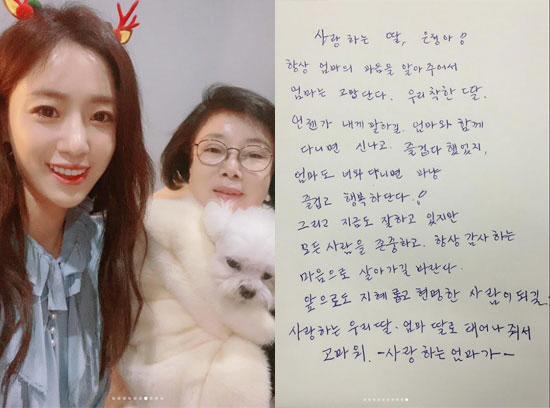 사랑하는 딸, 은정아!
항상 엄마의 마음을 알아주어서
엄마는 고맙단다. 우리 착한 딸.
언젠가 내게 말하길, 엄마와 함께
다니면 신나고. 즐겁다 했었지,
엄마도 너와 다니면 마냥
즐겁고 행복하단다!
그리고 지금도 잘하고 있지만
모든사람을 존중하고. 항상 감사하는
마음으로 살아가길 바란다.
앞으로도 지혜롭고 현명한 사람이 되길.
사랑하는 우리딸. 엄마 딸로 태어나 줘서
고마워. -사랑하는 엄마가-